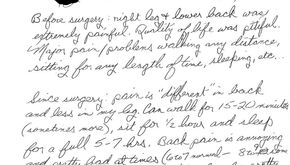 Before surgery: right leg & lower back was
extremely painful. Quality of life was pitiful.
Major pain/problems walking any distance,
sitting for any length of time, sleeping, etc...
Since surgery: pain is "different" in back
and less in my leg. Can walk for 15-20 minutes
(sometimes more), sit for ½ hour and sleep
for a full 5-7 hrs. Back pain is annoying
and bad at times (6 or 7 normal -